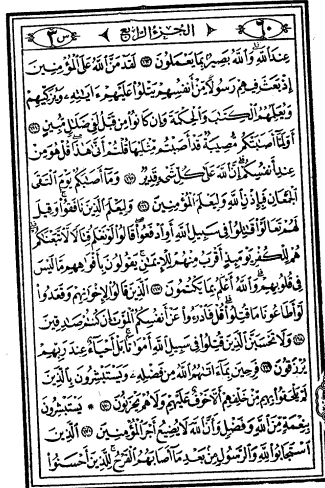 ٦٠ الجزء الرابع س ٣
عند الله والله بصير بما يعملون ١٦٣ لقد من الله على المؤمنين
إذ بعث فيهم رسولا من أنفسهم يتلوا عليهم ءايته ويزكيهم
ويعلمهم الكتب والحكمة وإن كانوا من قبل لفي ضلل مبين ١٦٤
أولما أصبتكم مصيبة قد أصبتم مثليها قلتم أنى هذا قل هو من
عند أنفسكم إن الله على كل شيء قدير ١٦٥ وما أصبكم يوم التقى
الجمعان فبإذن الله وليعلم المؤمنين ١٦٦ وليعلم الذين نافقوا وقيل
لهم تعالوا قتلوا في سبيل الله أو ادفعوا قالوا لو نعلم قتالا لاتبعنكم
هم للكفر يومئذ أقرب منهم للإيمن يقولون بأفوههم ما ليس
في قلوبهم والله أعلم بما يكتمون ١٦٧ الذين قالوا لإخونهم وقعدوا
لو أطاعونا ما قتلوا قل فادرءوا عن أنفسكم الموت إن كنتم صدقين
١٦٨ ولا تحسبن الذين قتلوا في سبيل الله أموتا بل أحياء عند ربهم
يرزقون ١٦٩ فرحين بما ءاتهم الله من فضله ويستبشرون بالذين
لم يلحقوا بهم من خلفهم ألا خوف عليهم ولا هم يحزنون ١٧٠ * يستبشرون
بنعمة من الله وفضل وأن الله لا يضيع أجر المؤمنين ١٧١ الذين
استجابوا لله والرسول من بعد ما أصابهم القرح للذين أحسنوا